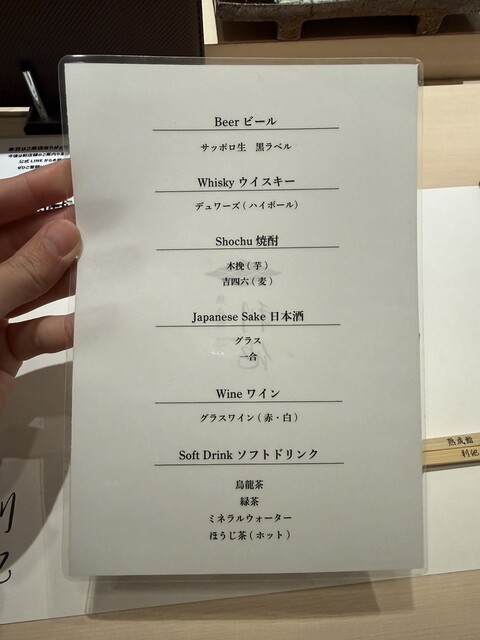 Beer ビール
サッポロ生 黒ラベル
Whisky ウイスキー
デュワーズ ( ハイボール)
Shochu 焼酎
木挽 ( 芋 )
吉四六 ( 麦 )
Japanese Sake 日本酒
グラス
一合
Wine ワイン
グラスワイン ( 赤・白 )
Soft Drink ソフトドリンク
烏龍茶
緑茶
ミネラルウォーター
ほうじ茶 ( ホット )
熟成鮨
利他
公式 LINE から